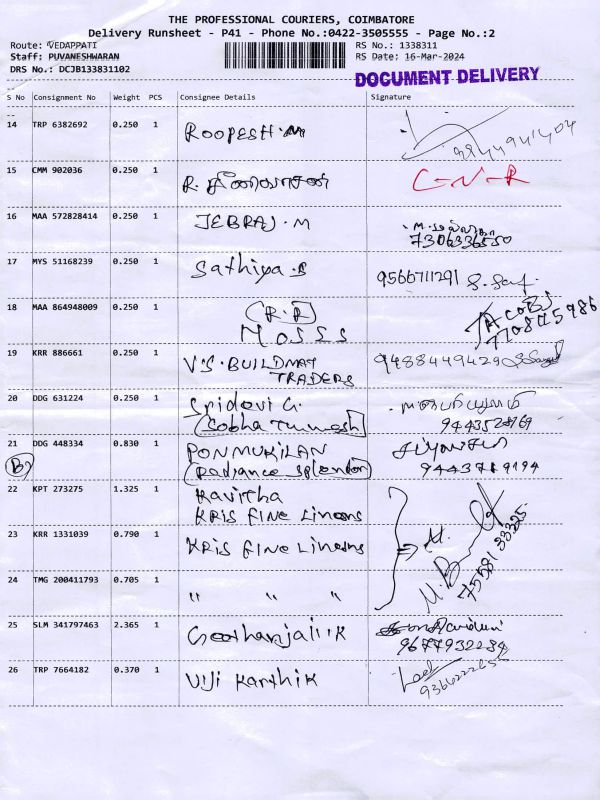 THE PROFESSIONAL COURIERS, COIMBATORE
Delivery Runsheet - P41 - Phone No.:0422-3505555 - Page No.:2
Route: VEDAPPATI
RS No.: 1338311
Staff: PUVANESHWARAN
RS Date: 16-Mar-2024
DRS No.: DCJB133831102
DOCUMENT DELIVERY
S No Consignment No Weight PCS Consignee Details Signature
14 TRP 6382692 0.250 1 ROOPESH.M
15 CMM 902036 0.250 1 R. C-N-R
16 MAA 572828414 0.250 1 JEBRAJ.M
7306336550
17 MYS 51168239 0.250 1 Sathiya.S 9566711291
18 MAA 864948009 0.250 1 (R.R)
MOSSS JACOBJ
19 KRR 886661 0.250 1 V.S. BUILDMAT
TRADERS 9488449429
20 DDG 631224 0.250 1 Sridevi G.
Sobha 
21 DDG 448334 0.830 1 PONMUKILAN
(Radiance Splendor)
22 KPT 273275 1.325 1 Kavitha
KRIS fine Linens
23 KRR 1331039 0.790 1 KRIS fine Linens
M.
75581 33325
24 TMG 200411793 0.705 1 " " "
25 SLM 341797463 2.365 1 Geethanjali K
9677932284
26 TRP 7664182 0.370 1 Viji Karthik